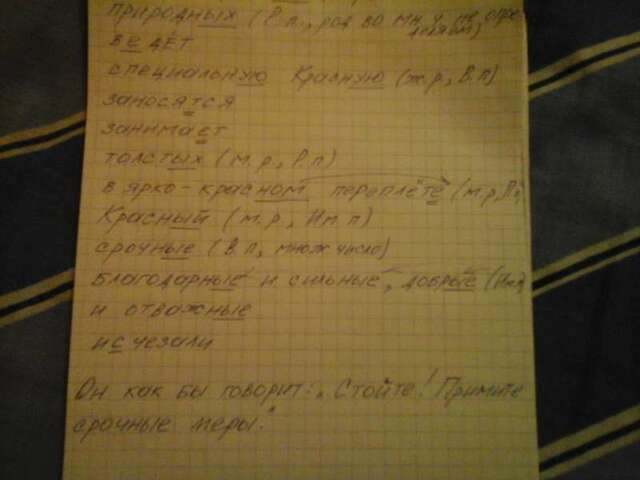 природных (В.п., род во мн.ч. не опре-
деляем)
ведёт
специальную Красную (ж.р, В.п)
заносятся
занимает
толстых (м.р, Р.п)
в ярко-красном переплёте (м.р,П.п
Красный (м.р, Им.п)
срочные (В.п, множ число)
Благодарные и сильные, добрые (Им.п
и отважные
исчезали
Он как бы говорит: „Стойте! Примите
срочные меры!"